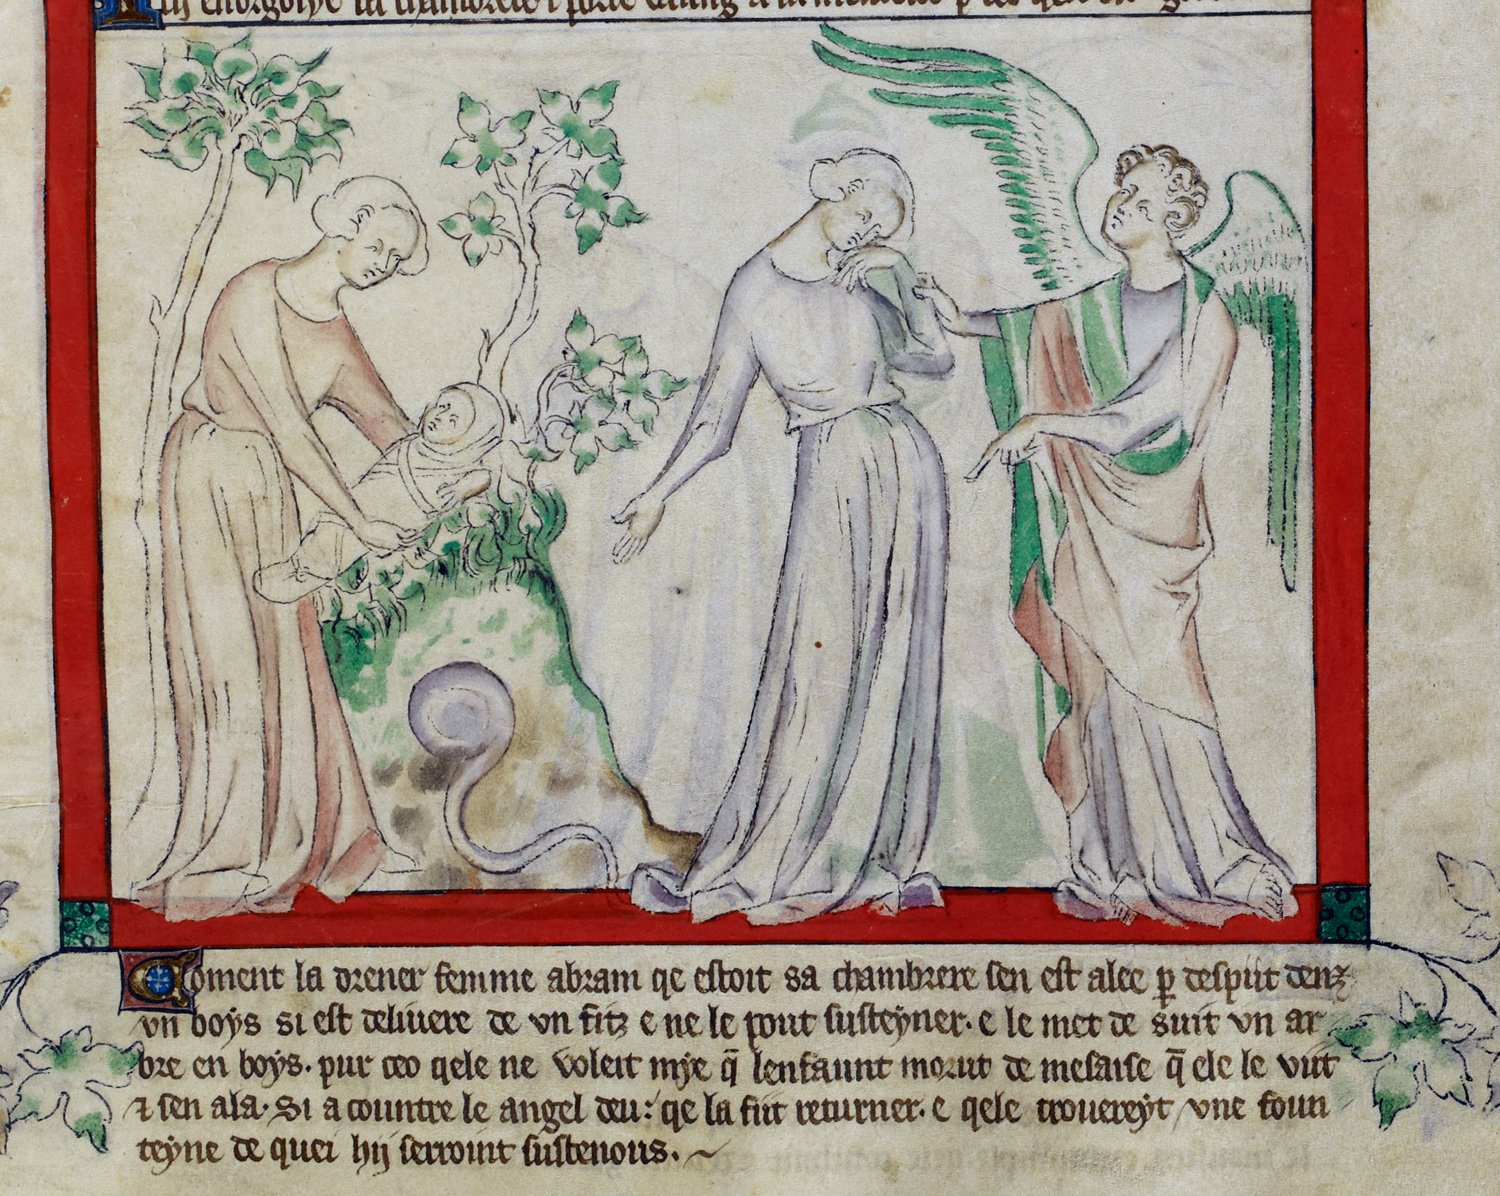 Coment la drener femme abram qe estoit sa chambrere sen est alee p despiit denz
vn boys si est deliuere de vn fitz e ne le pout susteyner. e le met de suit vn ar
bre en boys. pur ceo qele ne voleit mye q̄ lenfaunt morut de mesaise q̄ ele le viit
⁊ sen ala. Si acountre le angel deu: qe la fiit returner. e qele trouereyt vne foun
teyne de quei hij serroint sustenous.